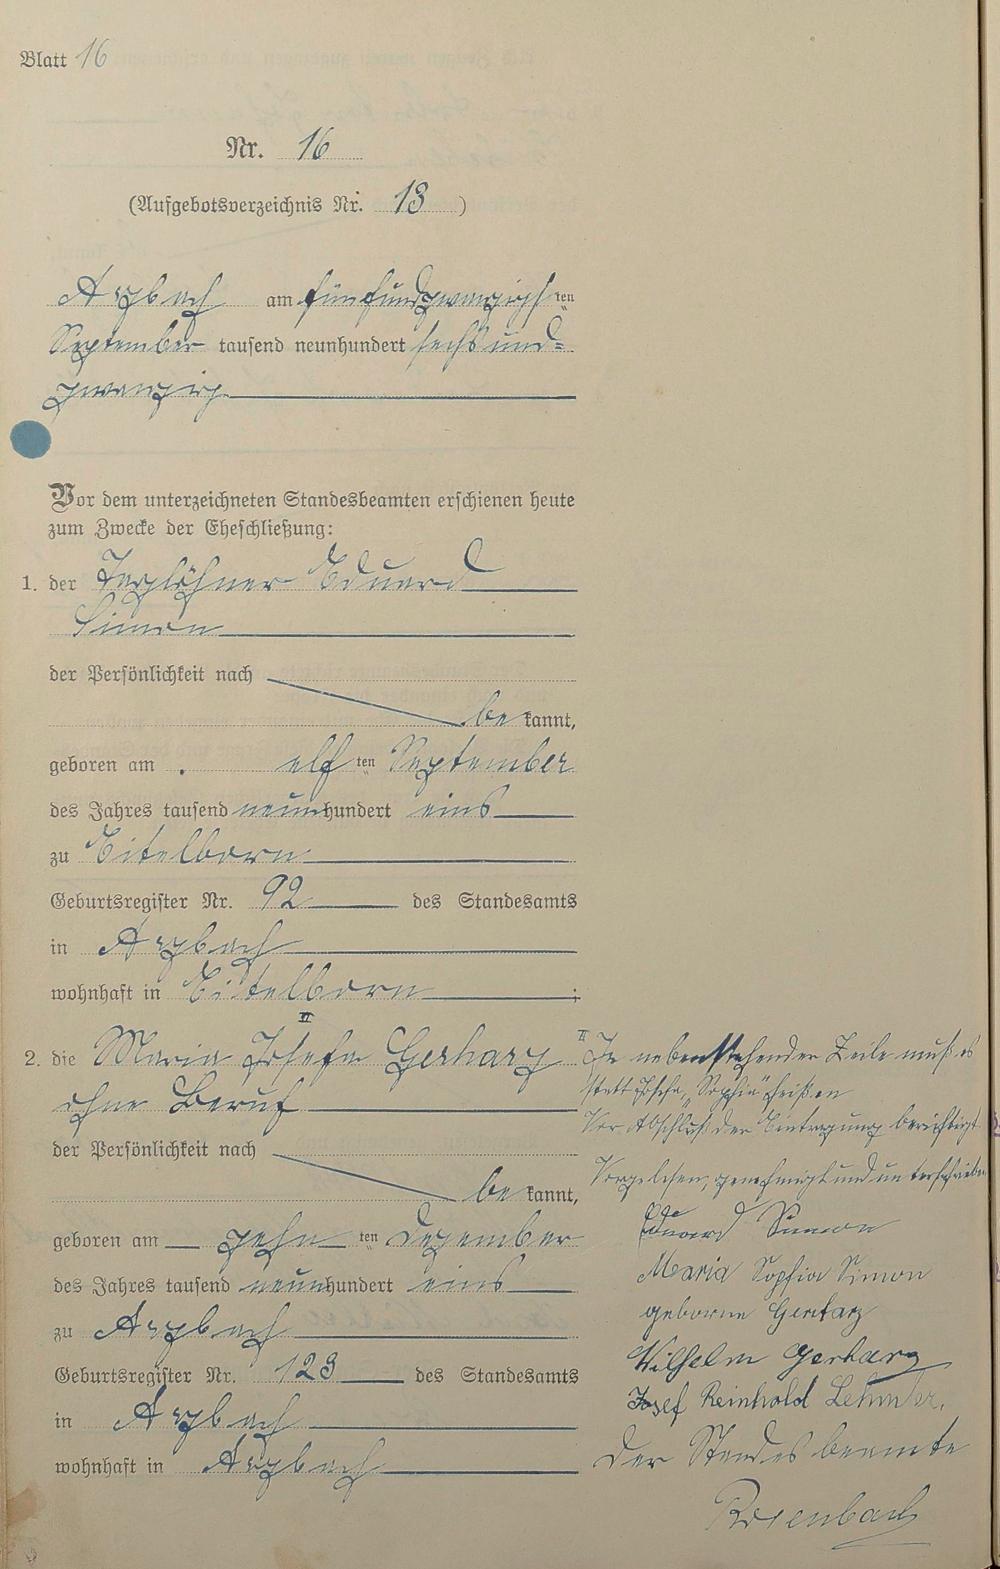 Blatt 16
Nr. 16
(Aufgebotsverzeichnis Nr. 13)
Arzbach am fünfundzwanzigsten
September tausend neunhundert sechsund=
zwanzig
Vor dem unterzeichneten Standesbeamten erschienen heute
zum Zwecke der Eheschließung:
1. der Taglöhner Eduard
Simon
der Persönlichkeit nach
bekannt,
geboren am elften September
des Jahres tausend neunhundert eins
zu Eitelborn
Geburtsregister Nr. 92 des Standesamts
in Arzbach
wohnhaft in Eitelborn;
2. die Maria Josefa Gerharz
ohne Beruf
der Persönlichkeit nach
bekannt,
geboren am zehnten Dezember
des Jahres tausend neunhundert eins
zu Arzbach
Geburtsregister Nr. 123 des Standesamts
in Arzbach
wohnhaft in Arzbach
In nebenstehender Zeile muß es
statt Josefa, "Sophia" heißen
Vor Abschluß der Eintragung berichtigt
Vorgelesen, genehmigt und unterschrieben
Eduard Simon
Maria Sophia Simon
geborne Gerharz
Wilhelm Gerharz
Josef Reinhold
Der Standesbeamte
Rosenbach